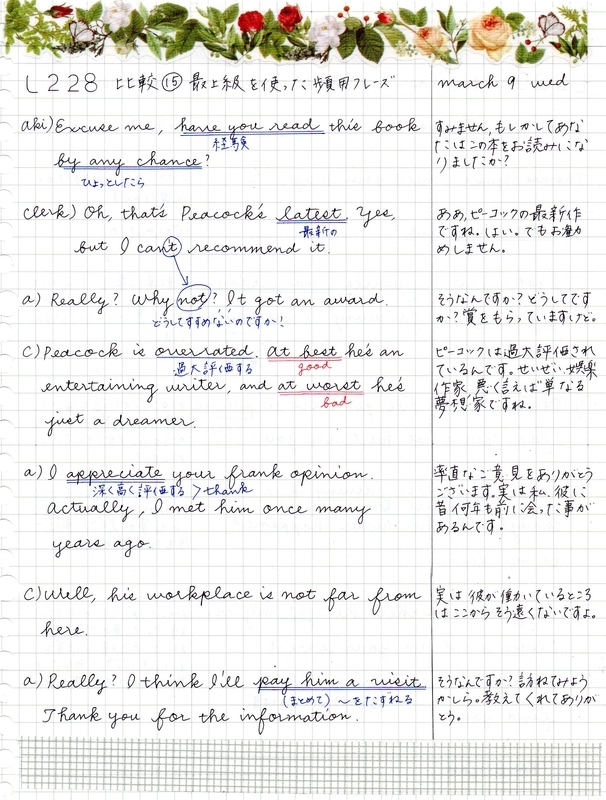 L228 比較⑮ 最上級を使った頻用フレーズ
march 9 wed
aki) Excuse me, have you read this book
経験
by any chance?
ひょっとしたら
すみません、もしかしてあな
たはこの本をお読みにな
りましたか?
clerk) Oh, that's Peacock's latest. Yes,
最新の
but I can't recommend it.
ああ、ピーコックの最新作
ですね。はい。でもお勧
めしません。
a) Really? Why not? It got an award.
どうしてすすめないのですか!
そうなんですか?どうしてです
か?賞をもらっていますけど。
C) Peacock is overrated. At best he's an
過大評価する
good
entertaining writer, and at worst he's
bad
just a dreamer.
ピーコックは過大評価され
ているんです。せいぜい、娯楽
作家 悪く言えば単なる
夢想家ですね。
a) I appreciate your frank opinion.
深く高く評価する > thank
Actually, I met him once many
years ago.
率直なご意見をありがとう
ございます。実は私、彼に
昔何年も前に会った事が
あるんです。
C) Well, his workplace is not far from
here.
実は彼が働いているところ
はここからそう遠くないですよ。
a) Really? I think I'll pay him a visit
(まとめて) 〜をたずねる
Thank you for the information.
そうなんですか?訪ねてみよう
かしら。教えてくれてありが
とう。